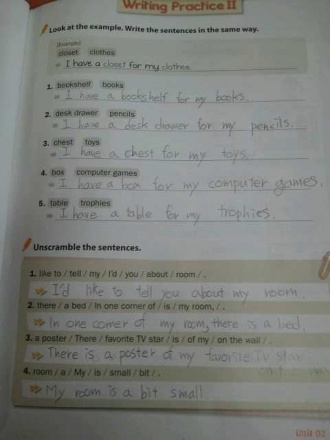 Writing Practice II
Look at the example. Write the sentences in the same way.
(Example)
closet clothes
I have a closet for my clothes.
1. bookshelf books
I have a bookshelf for my books.
2. desk drawer pencils
I have a desk drawer for my pencils.
3. chest toys
I have a chest for my toys.
4. box computer games
I have a box for my computer games.
5. table trophies
I have a table for my trophies.
Unscramble the sentences.
1. like to / tell / my / I'd / you / about / room / .
I'd like to tell you about my room.
2. there / a bed / In one corner of / is / my room, / .
In one corner of my room, there is a bed.
3. a poster / There / favorite TV star / is / of my / on the wall / .
There is a poster of my favorite TV star
on
4. room / a / My / is / small / bit / .
My room is a bit small
Unit 03